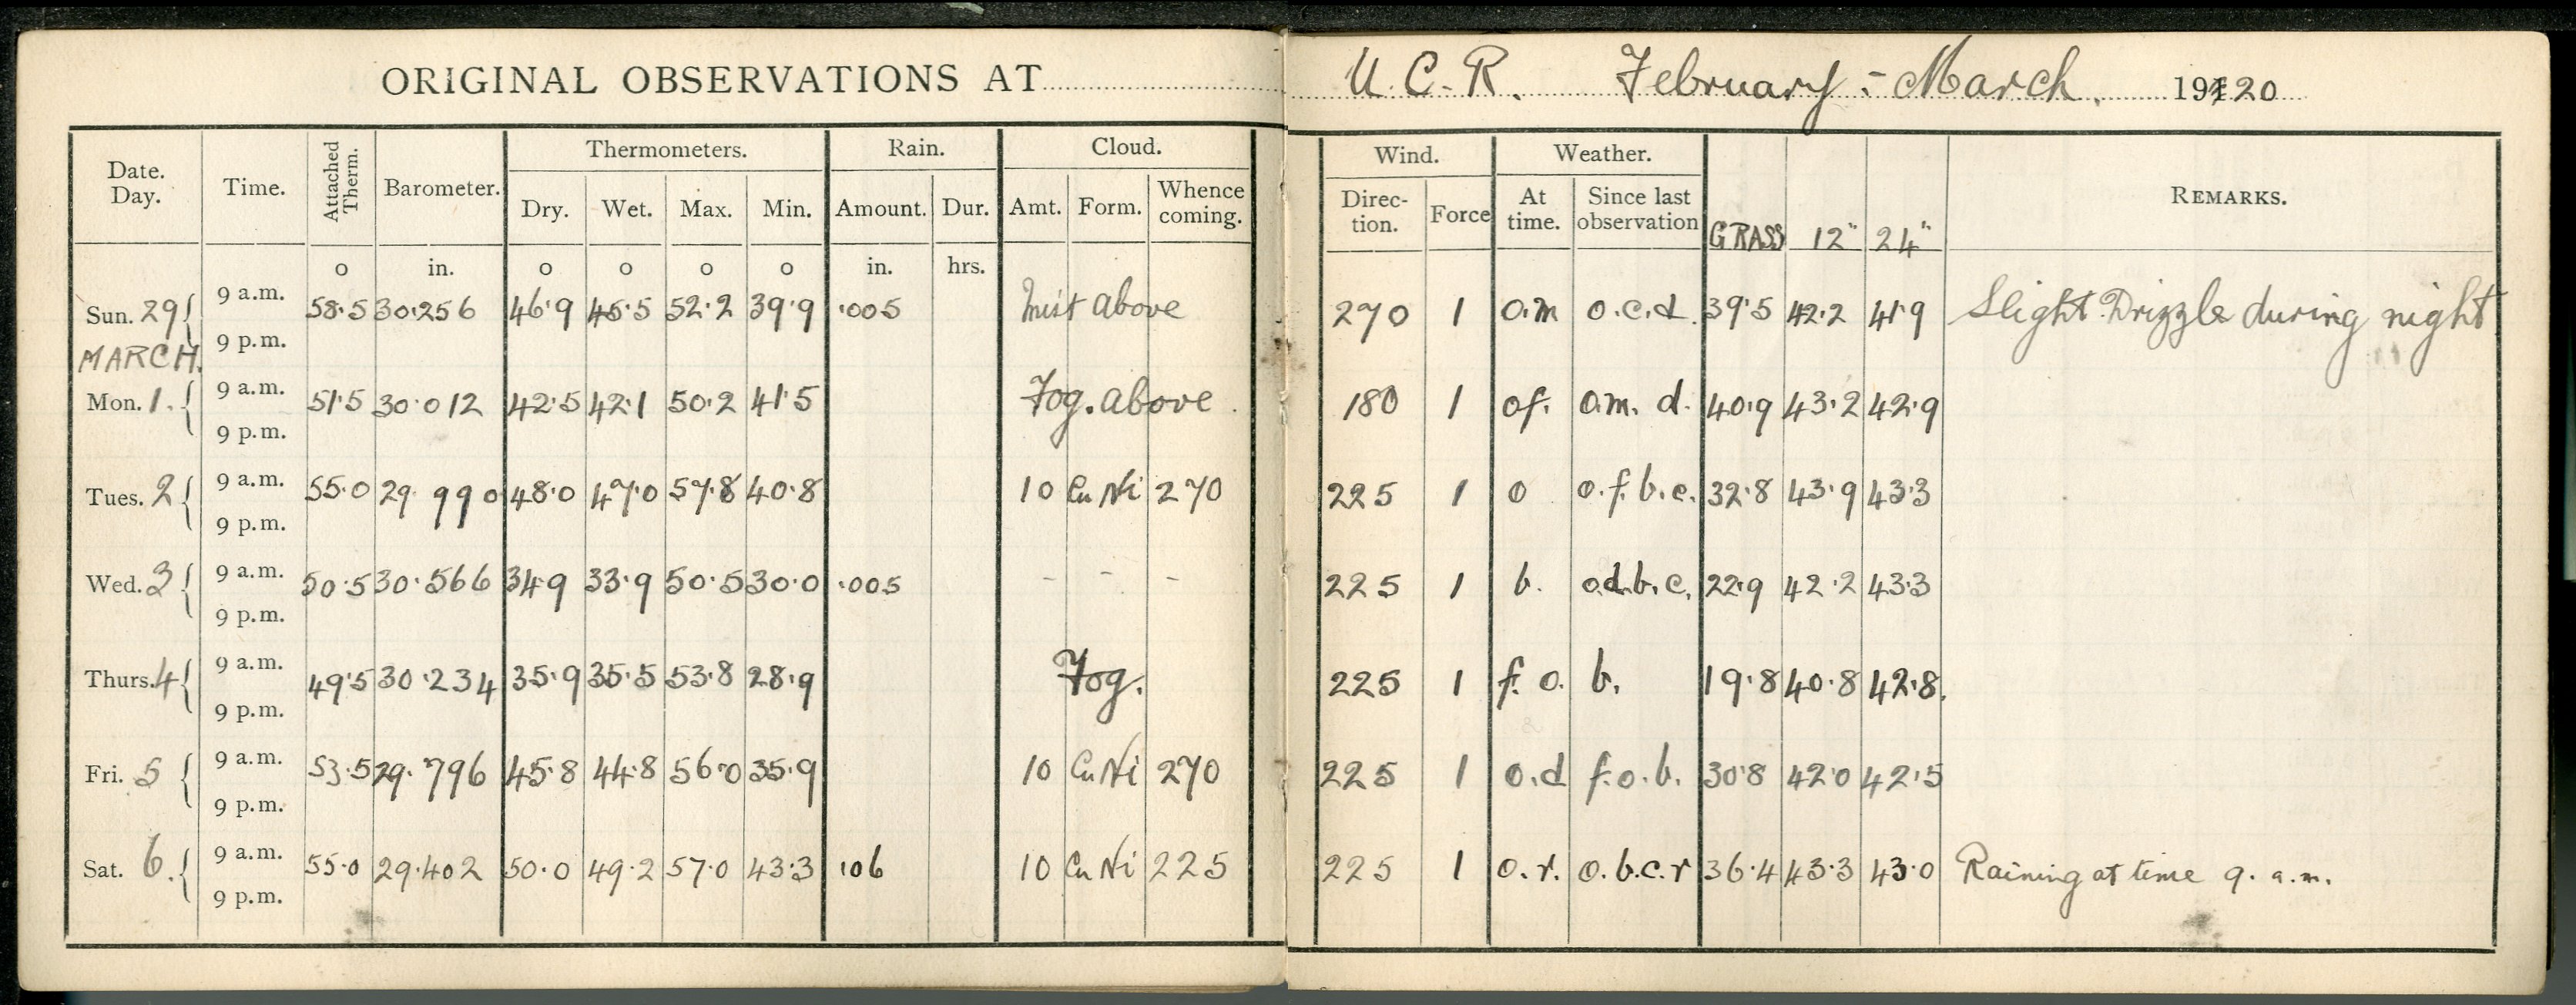 ORIGINAL OBSERVATIONS AT U. C. R. February - March. 19120
Date. Day. Time. Attached Therm. Barometer. Thermometers. Rain. Cloud. Wind. Weather. GRASS 12" 24" REMARKS.
Dry. Wet. Max. Min. Amount. Dur. Amt. Form. Whence coming. Direc- tion. Force At time. Since last observation
o in. o o o o in. hrs.
Sun. 29 9 a.m. 58.5 30.256 46.9 45.5 52.2 39.9 .005 Mist above 270 1 o.m o.c.d. 39.5 42.2 41.9 Slight Drizzle during night
9 p.m.
MARCH.
Mon. 1. 9 a.m. 51.5 30.012 42.5 42.1 50.2 41.5 Fog. above. 180 1 of. o.m. d. 40.9 43.2 42.9
9 p.m.
Tues. 2 9 a.m. 55.0 29.990 48.0 47.0 57.8 40.8 10 Cu Ni 270 225 1 o o.f.b.c. 32.8 43.9 43.3
9 p.m.
Wed. 3 9 a.m. 50.5 30.566 34.9 33.9 50.5 30.0 .005 - - - 225 1 b. o.d.b.c. 22.9 42.2 43.3
9 p.m.
Thurs. 4 9 a.m. 49.5 30.234 35.9 35.5 53.8 28.9 Fog. 225 1 f. o. b. 19.8 40.8 42.8.
9 p.m.
Fri. 5 9 a.m. 53.5 29.796 45.8 44.8 56.0 35.9 10 Cu Ni 270 225 1 o.d f.o.b. 30.8 42.0 42.5
9 p.m.
Sat. 6. 9 a.m. 55.0 29.402 50.0 49.2 57.0 43.3 .06 10 Cu Ni 225 225 1 o.r. o.b.c.r 36.4 43.3 43.0 Raining at time 9. a.m.
9 p.m.